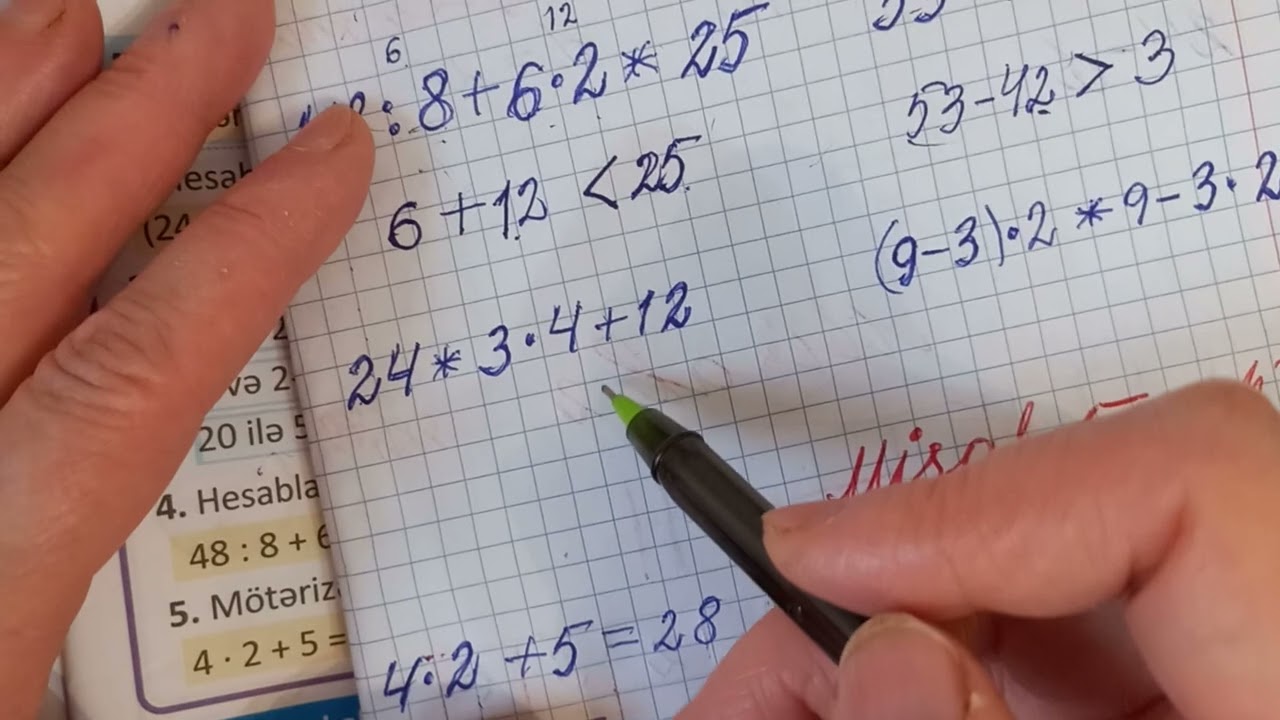 6 12
: 8 + 6 · 2 * 25
6 + 12 < 25
24 * 3 · 4 + 12
4 · 2 + 5 = 28
53 - 42 > 3
(9 - 3) · 2 * 9 - 3 · 2
(24
və 2
20 ilə 5
4. Hesabla
48 : 8 + 6
5.
4 · 2 + 5 =